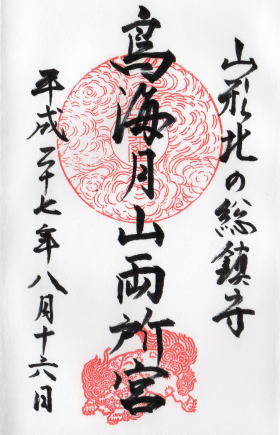 山形北の総鎮守
鳥海月山両所宮
平成二十七年八月十六日